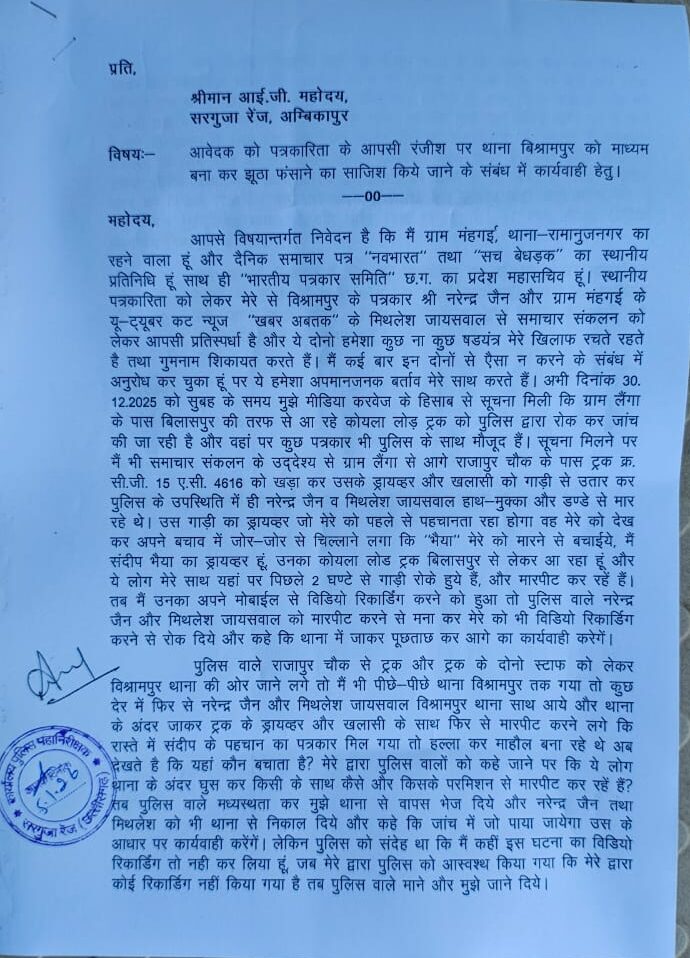 प्रति,
श्रीमान आई.जी. महोदय,
सरगुजा रेंज, अम्बिकापुर
विषयः– आवेदक को पत्रकारिता के आपसी रंजीश पर थाना बिश्रामपुर को माध्यम
बना कर झूठा फंसाने का साजिश किये जाने के संबंध में कार्यवाही हेतु।
—00—
महोदय,
आपसे विषयान्तर्गत निवेदन है कि मैं ग्राम मंहगई, थाना–रामानुजनगर का
रहने वाला हूं और दैनिक समाचार पत्र "नवभारत" तथा "सच बेधड़क" का स्थानीय
प्रतिनिधि हूं साथ ही "भारतीय पत्रकार समिति" छ.ग. का प्रदेश महासचिव हूं। स्थानीय
पत्रकारिता को लेकर मेरे से विश्रामपुर के पत्रकार श्री नरेन्द्र जैन और ग्राम मंहगई के
यू–ट्यूबर कट न्यूज "खबर अबतक" के मिथलेश जायसवाल से समाचार संकलन को
लेकर आपसी प्रतिस्पर्धा है और ये दोनो हमेशा कुछ ना कुछ षडयंत्र मेरे खिलाफ रचते रहते
है तथा गुमनाम शिकायत करते हैं। मैं कई बार इन दोनों से एैसा न करने के संबंध में
अनुरोध कर चुका हूं पर ये हमेशा अपमानजनक बर्ताव मेरे साथ करते हैं। अभी दिनांक 30.
12.2025 को सुबह के समय मुझे मीडिया करवेज के हिसाब से सूचना मिली कि ग्राम लैंगा
के पास बिलासपुर की तरफ से आ रहे कोयला लोड़ ट्रक को पुलिस द्वारा रोक कर जांच
की जा रही है और वहां पर कुछ पत्रकार भी पुलिस के साथ मौजूद हैं। सूचना मिलने पर
मैं भी समाचार संकलन के उद्देश्य से ग्राम लैंगा से आगे राजापुर चौक के पास ट्रक क्र.
सी.जी. 15 ए.सी. 4616 को खड़ा कर उसके ड्रायव्हर और खलासी को गाड़ी से उतार कर
पुलिस के उपस्थिति में ही नरेन्द्र जैन व मिथलेश जायसवाल हाथ–मुक्का और डण्डे से मार
रहे थे। उस गाड़ी का ड्रायव्हर जो मेरे को पहले से पहचानता रहा होगा वह मेरे को देख
कर अपने बचाव में जोर–जोर से चिल्लाने लगा कि "भैया" मेरे को मारने से बचाईये, मैं
संदीप भैया का ड्रायव्हर हूं, उनका कोयला लोड ट्रक बिलासपुर से लेकर आ रहा हूं और
ये लोग मेरे साथ यहां पर पिछले 2 घण्टे से गाड़ी रोके हुये हैं, और मारपीट कर रहें हैं।
तब मैं उनका अपने मोबाईल से विडियो रिकार्डिंग करने को हुआ तो पुलिस वाले नरेन्द्र
जैन और मिथलेश जायसवाल को मारपीट करने से मना कर मेरे को भी विडियो रिकार्डिंग
करने से रोक दिये और कहे कि थाना में जाकर पूछताछ कर आगे का कार्यवाही करेगें।
पुलिस वाले राजापुर चौक से ट्रक और ट्रक के दोनो स्टाफ को लेकर
विश्रामपुर थाना की ओर जाने लगे तो मैं भी पीछे–पीछे थाना विश्रामपुर तक गया तो कुछ
देर में फिर से नरेन्द्र जैन और मिथलेश जायसवाल विश्रामपुर थाना साथ आये और थाना
के अंदर जाकर ट्रक के ड्रायव्हर और खलासी के साथ फिर से मारपीट करने लगे कि
रास्ते में संदीप के पहचान का पत्रकार मिल गया तो हल्ला कर माहौल बना रहे थे अब
देखते है कि यहां कौन बचाता है? मेरे द्वारा पुलिस वालों को कहे जाने पर कि ये लोग
थाना के अंदर घुस कर किसी के साथ कैसे और किसके परमिशन से मारपीट कर रहें हैं?
तब पुलिस वाले मध्यस्थता कर मुझे थाना से वापस भेज दिये और नरेन्द्र जैन तथा
मिथलेश को भी थाना से निकाल दिये और कहे कि जांच में जो पाया जायेगा उस के
आधार पर कार्यवाही करेंगें। लेकिन पुलिस को संदेह था कि मैं कहीं इस घटना का विडियो
रिकार्डिंग तो नही कर लिया हूं, जब मेरे द्वारा पुलिस को आस्वश्थ किया गया कि मेरे द्वारा
कोई रिकार्डिंग नहीं किया गया है तब पुलिस वाले माने और मुझे जाने दिये।
कार्यालय पुलिस महानिरीक्षक
5.1.26
सरगुजा रेंज (छत्तीसगढ़)